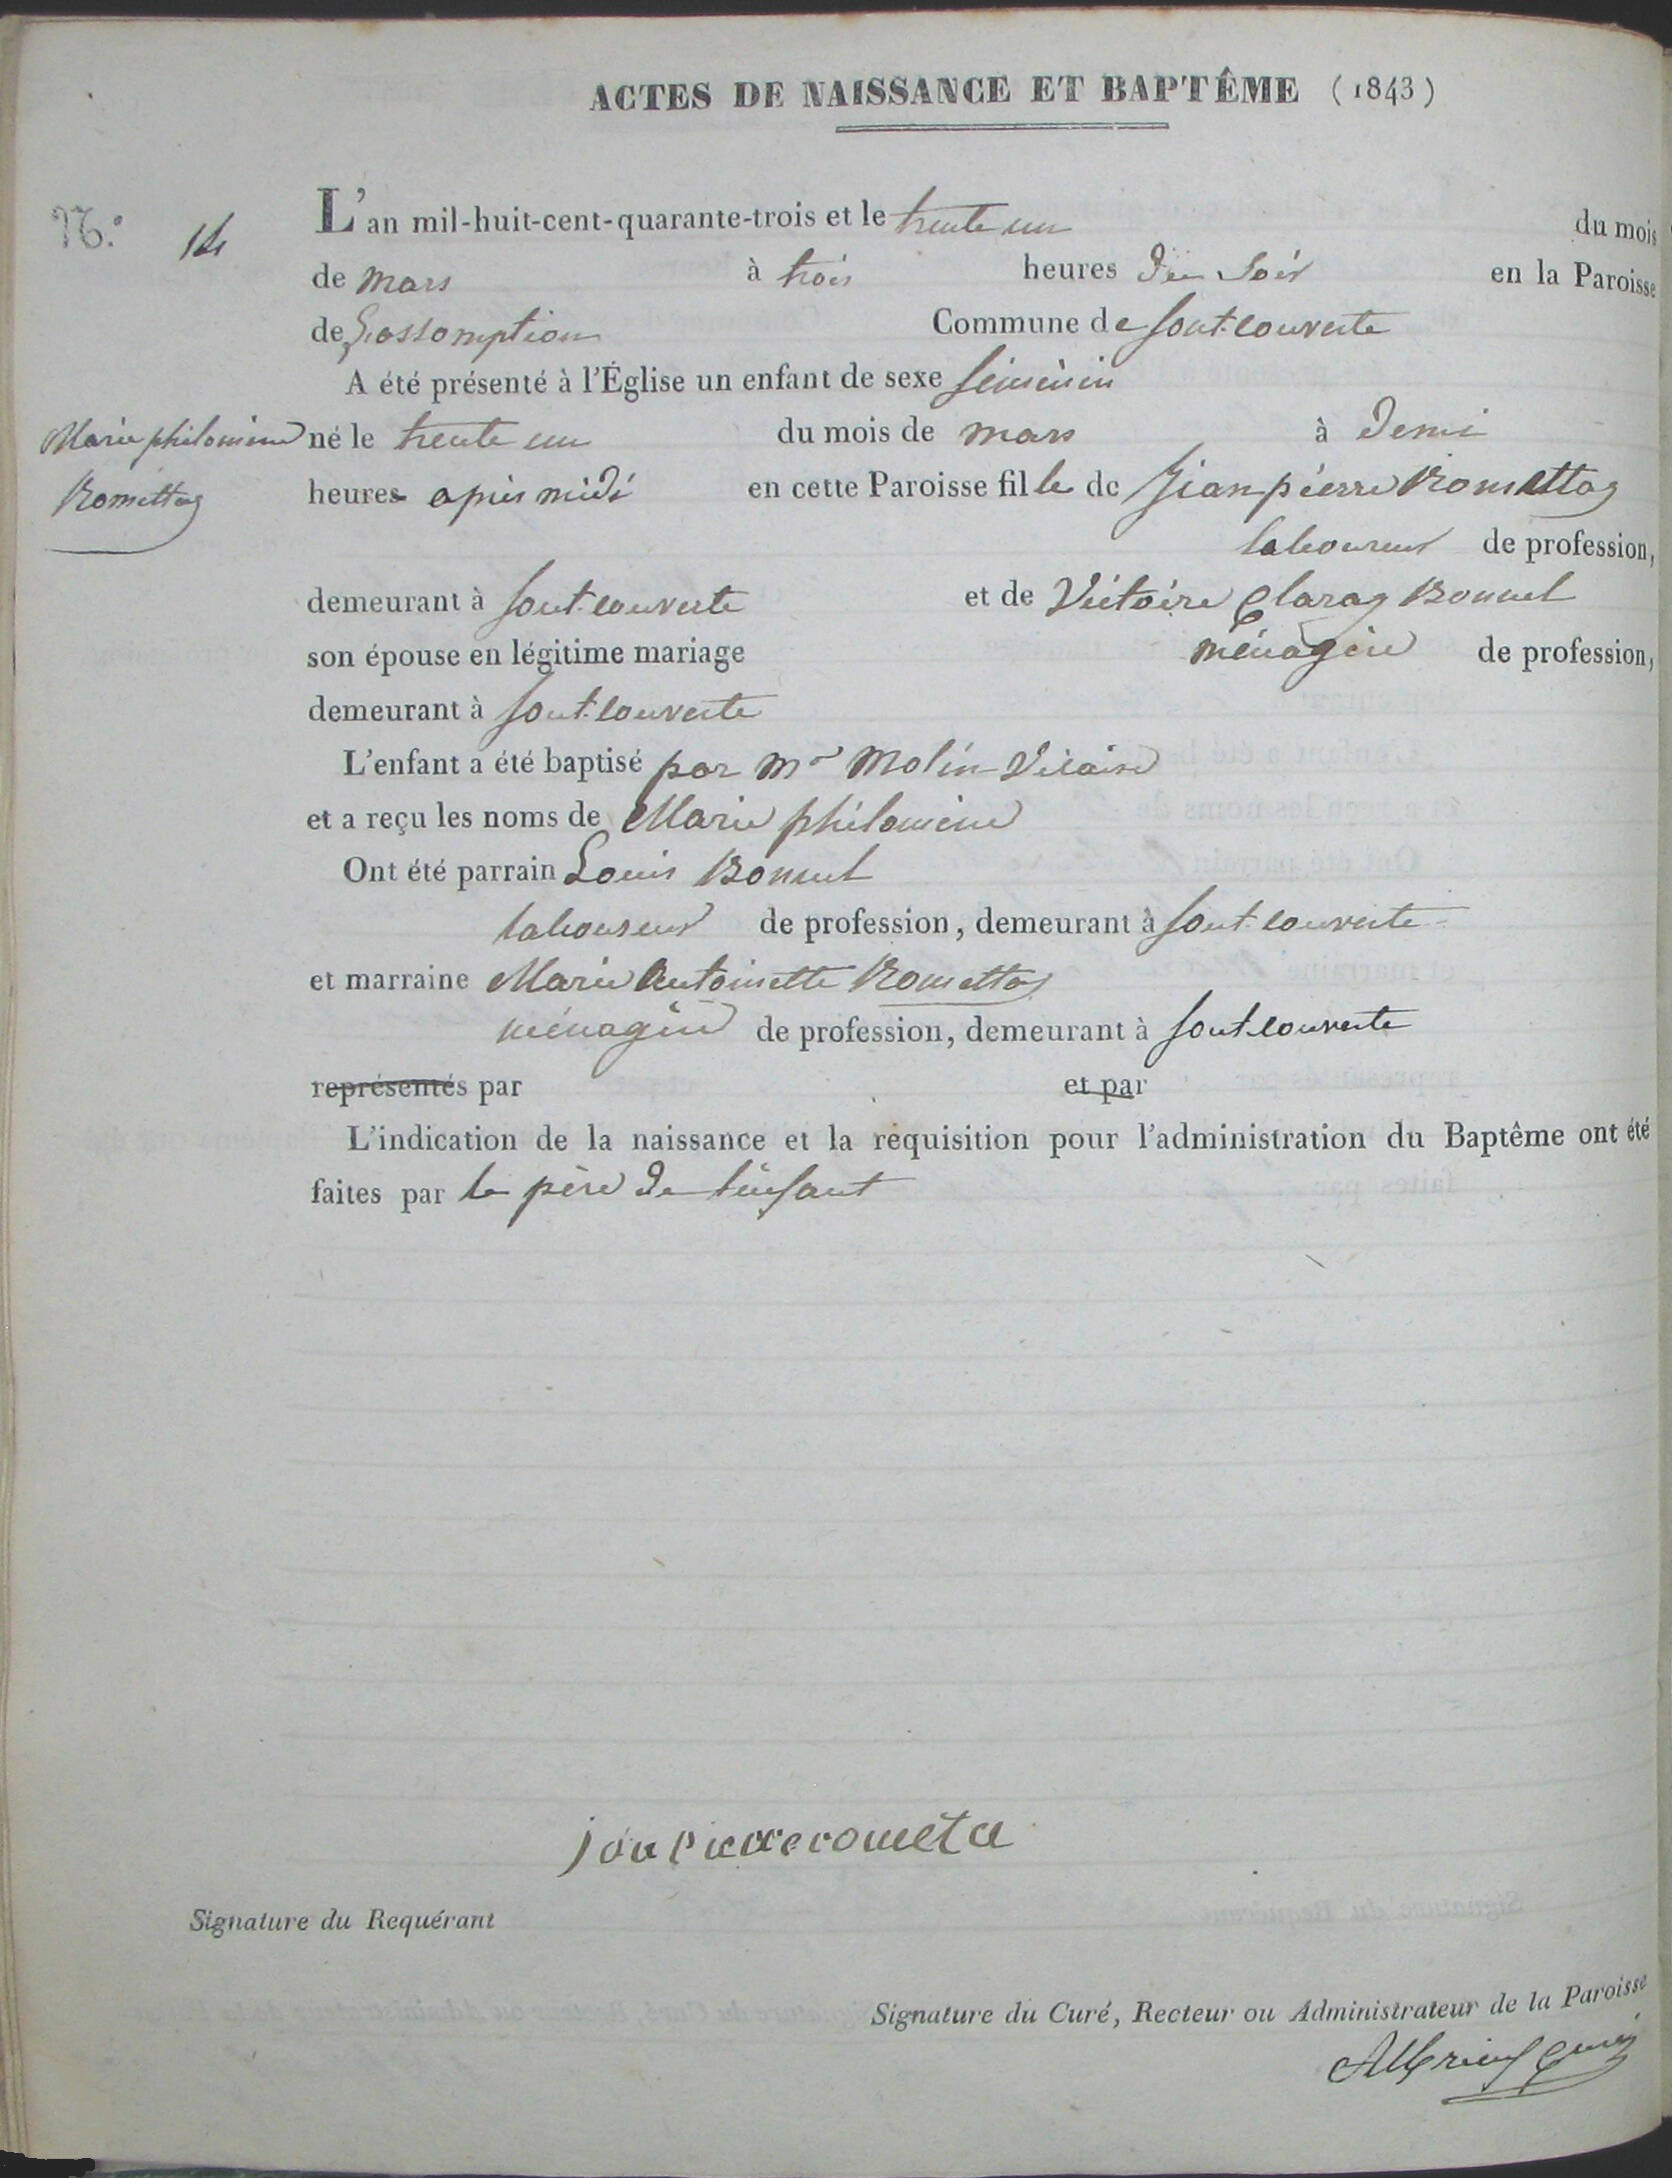 ACTES DE NAISSANCE ET BAPTÊME (1843)
N.° 14
L'an mil-huit-cent-quarante-trois et le trente un du mois
de mars à trois heures du soir en la Paroisse
de L'assomption Commune de font-couverte
A été présenté à l'Église un enfant de sexe féminin
Marie philomène
Romettaz
né le trente un du mois de mars à demi
heures après midi en cette Paroisse fille de Jean pierre Romettaz
laboureur de profession,
demeurant à font-couverte et de Victoire Claraz Bonnel
son épouse en légitime mariage ménagère de profession,
demeurant à font-couverte
L'enfant a été baptisé par Mr Molin Vicaire
et a reçu les noms de Marie philomène
Ont été parrain Louis Bonnel
laboureur de profession, demeurant à font-couverte
et marraine Marie Antoinette Romettaz
ménagère de profession, demeurant à font-couverte
représentés par et par
L'indication de la naissance et la réquisition pour l'administration du Baptême ont été
faites par le père de l'enfant
Signature du Requérant
Signature du Curé, Recteur ou Administrateur de la Paroisse